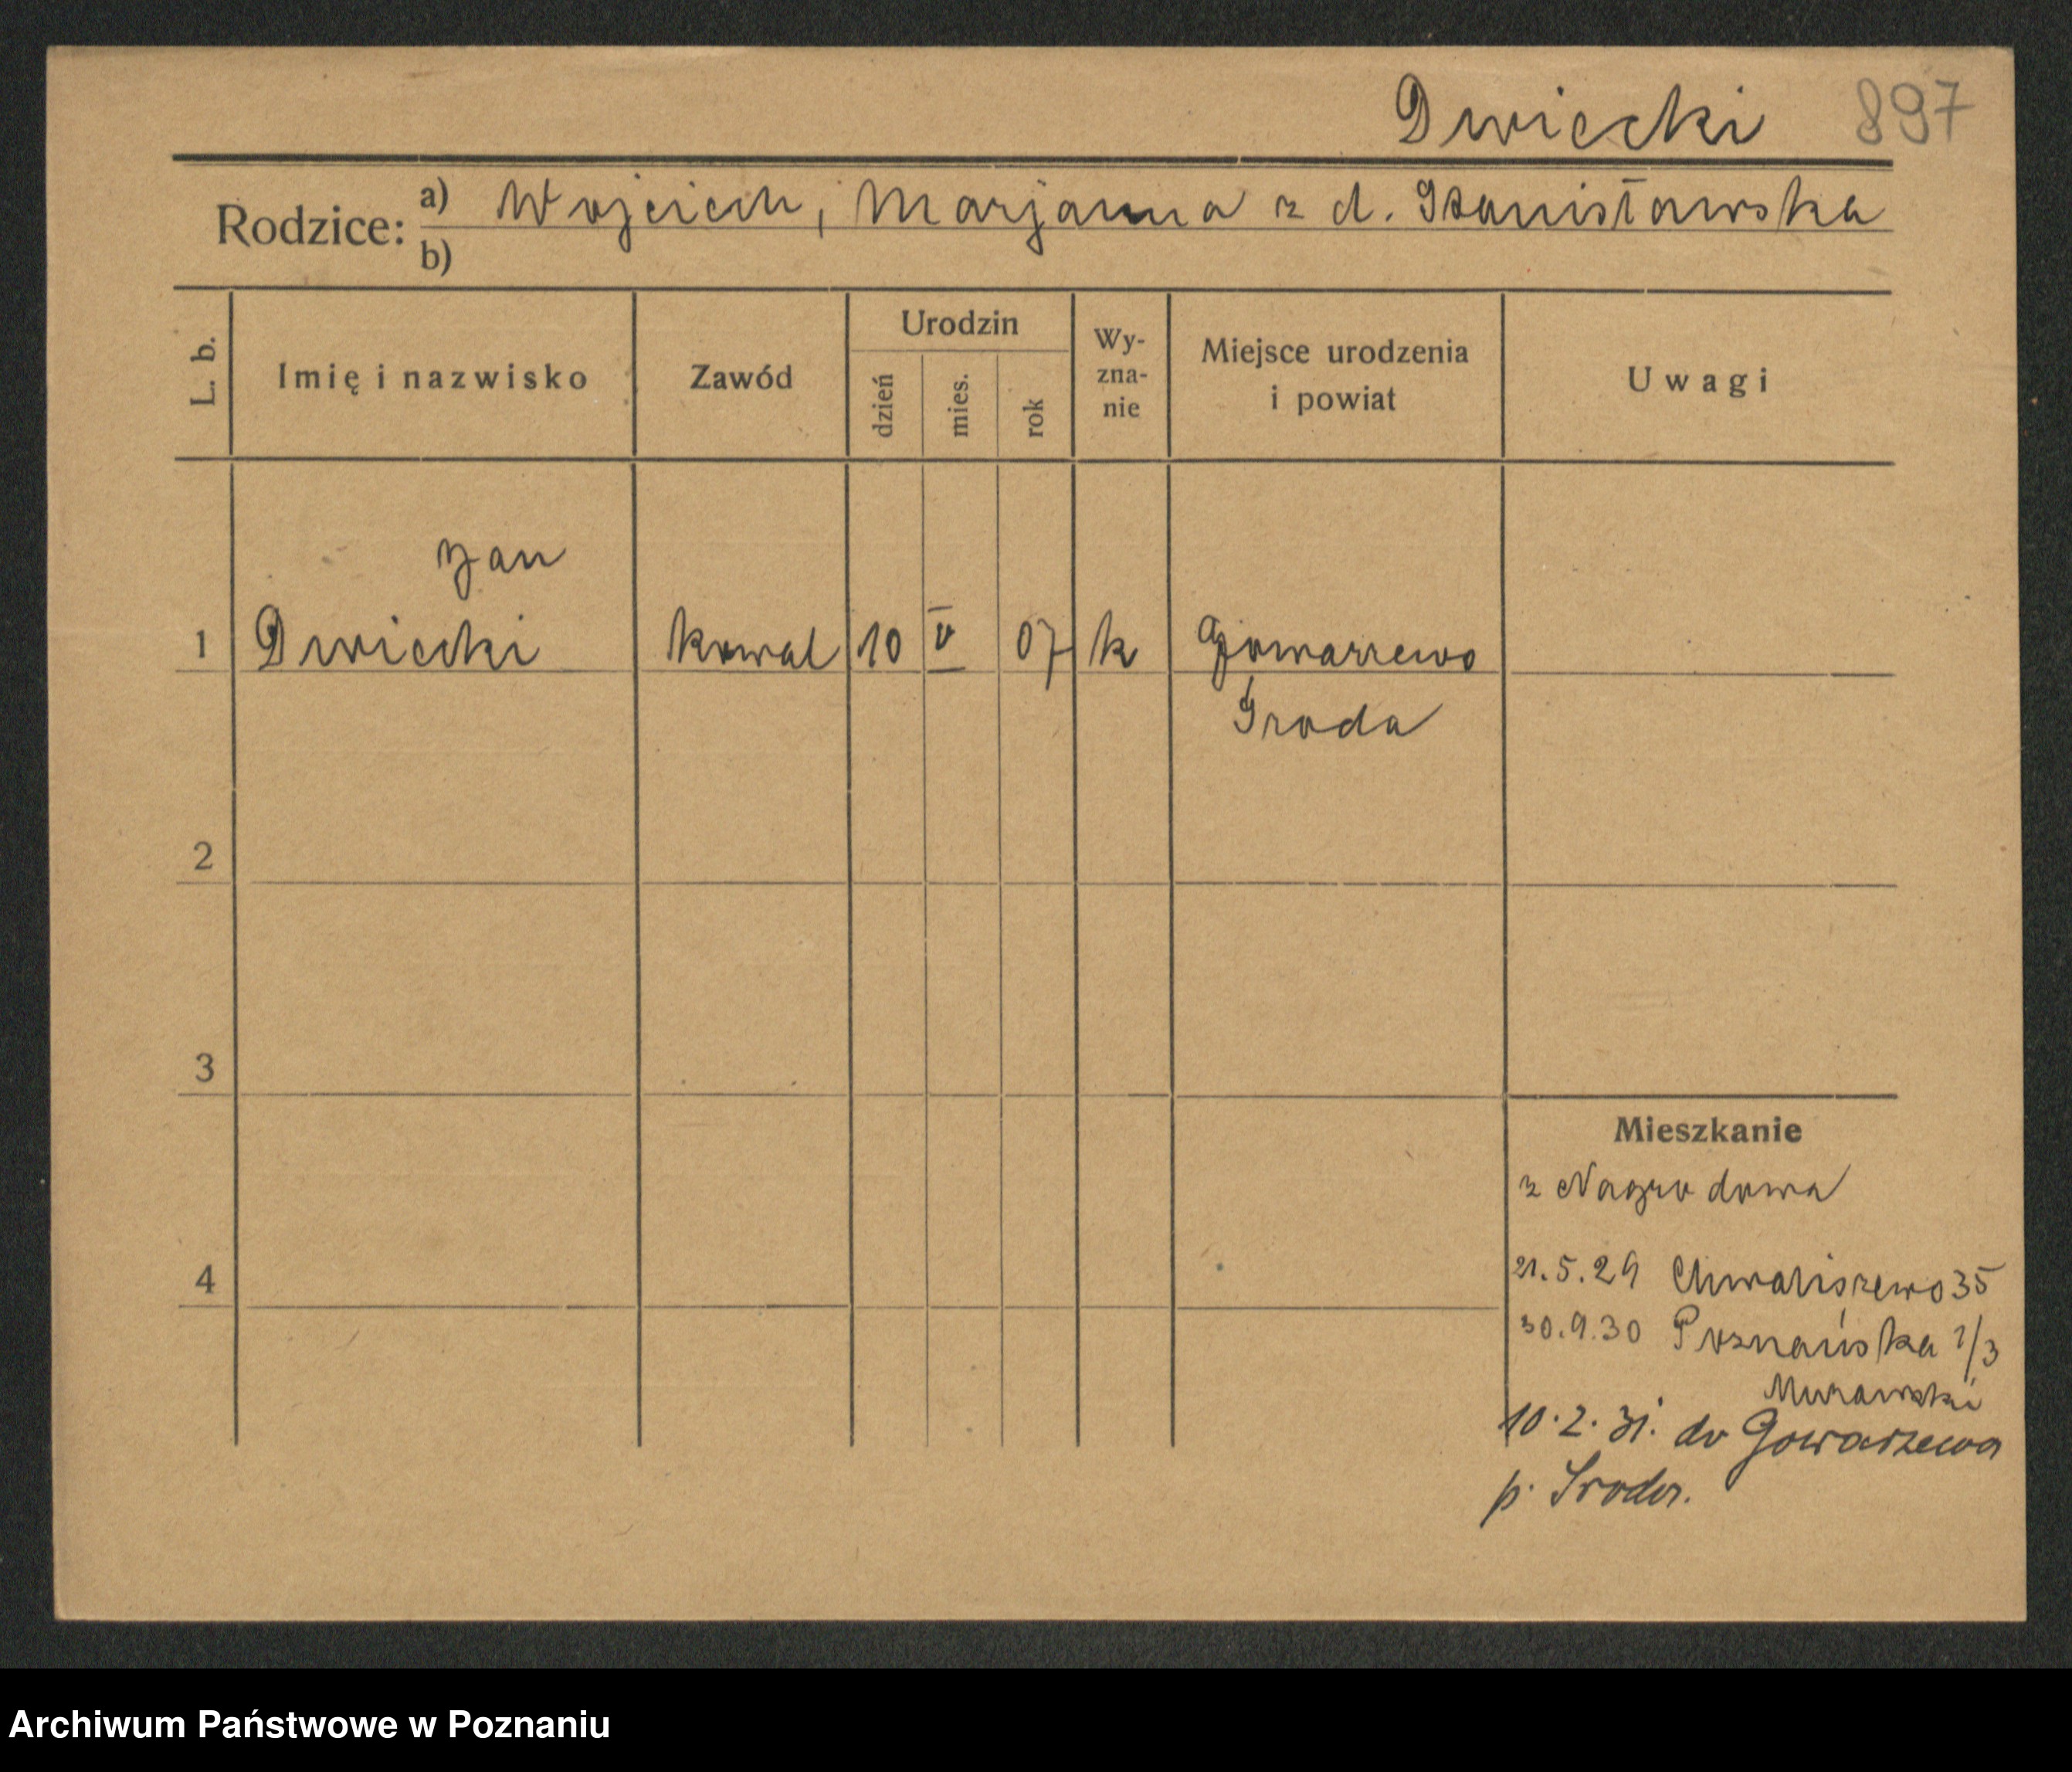 Dwiecki 897
Rodzice: a) Wojciech, Marjanna z d. Stanisławska
b)
L. b. Imię i nazwisko Zawód Urodzin dzień mies. rok Wy-zna-nie Miejsce urodzenia i powiat Uwagi
Jan
1 Dwiecki kowal 10 V 07 k Gowarzewo
Środa
2
3
Mieszkanie
z Nagrodowa
4
21.5.29 Chwaliszewo 35
30.9.30 Poznańska 1/3
Murawski
10.2.31. do Gowarzewa
p. Środa.
Archiwum Państwowe w Poznaniu